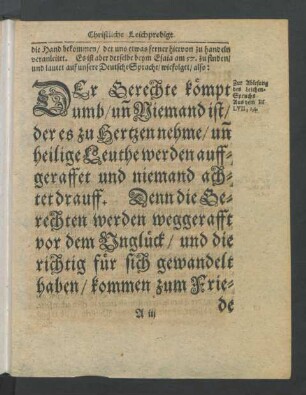 Christliche Leichpredigt.
die Hand bekommen / der uns etwas ferner hiervon zu handeln
veranleitet. Es ist aber derselbe beym Esaia am 57. zu finden /
und lautet auff unsere Deutsche Sprache / wie folget / also:
DEr Gerechte kömpt
umb / uñ Niemand ist /
der es zu Hertzen nehme / uñ
heilige Leuthe werden auff-
geraffet und niemand ach-
tet drauff. Denn die Ge-
rechten werden weggerafft
vor dem Vnglück / und die
richtig für sich gewandelt
haben / kommen zum Frie-
de
A iij
Zur Ablesung
des Leichen-
Spruchs
Aus dem
LVII.